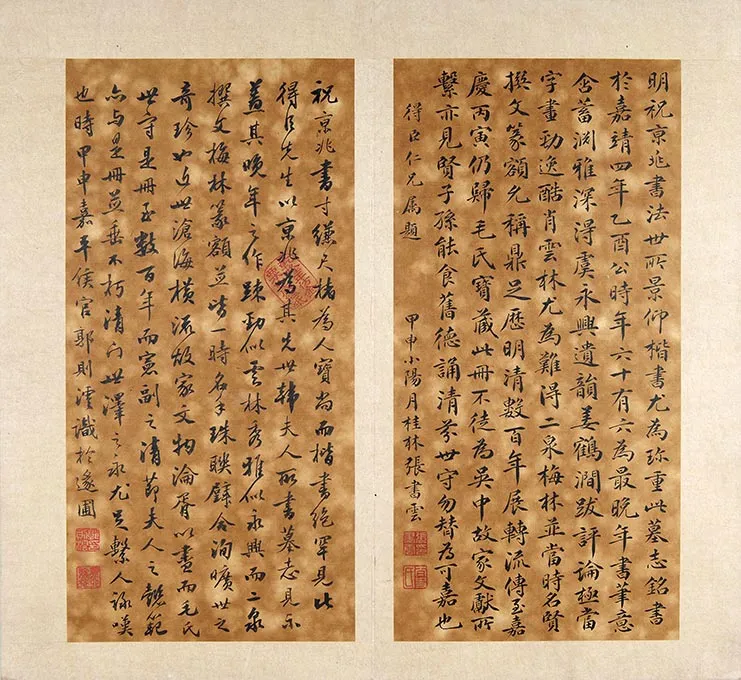 明祝京兆書法世所景仰楷書尤為珍重此墓志銘書
於嘉靖四年乙酉公時年六十有六為最晚年書筆意
含蓄渊雅深得虞永興遺韻姜鶴澗跋評論極當
字畫勁逸酷肖雲林尤為難得二泉梅林並當時名賢
撰文篆額允稱鼎足歷明清數百年展轉流傳至嘉
慶丙寅仍歸毛氏寶藏此冊不徒為吳中故家文獻所
繫亦見賢子孫能食舊德誦清芬世守勿替為可嘉也
得臣仁兄屬題
甲申小陽月桂林張書雲
祝京兆書寸縑尺楮為人寶尚而楷書絕罕見此
得臣先生以京兆為其先世韓夫人所書墓志見示
蓋其晚年之作疎勁似雲林秀雅似永興而二泉
撰文梅林篆額並皆一時名手珠聯璧合洵曠世之
奇珍也近世滄海橫流故家文物淪胥以盡而毛氏
世守是冊至數百年而憲副之清節夫人之懿範
亦與是冊並垂不朽清白世澤之永尤足繫人詠嘆
也時甲申嘉平侯官郭則澐識於邃圃